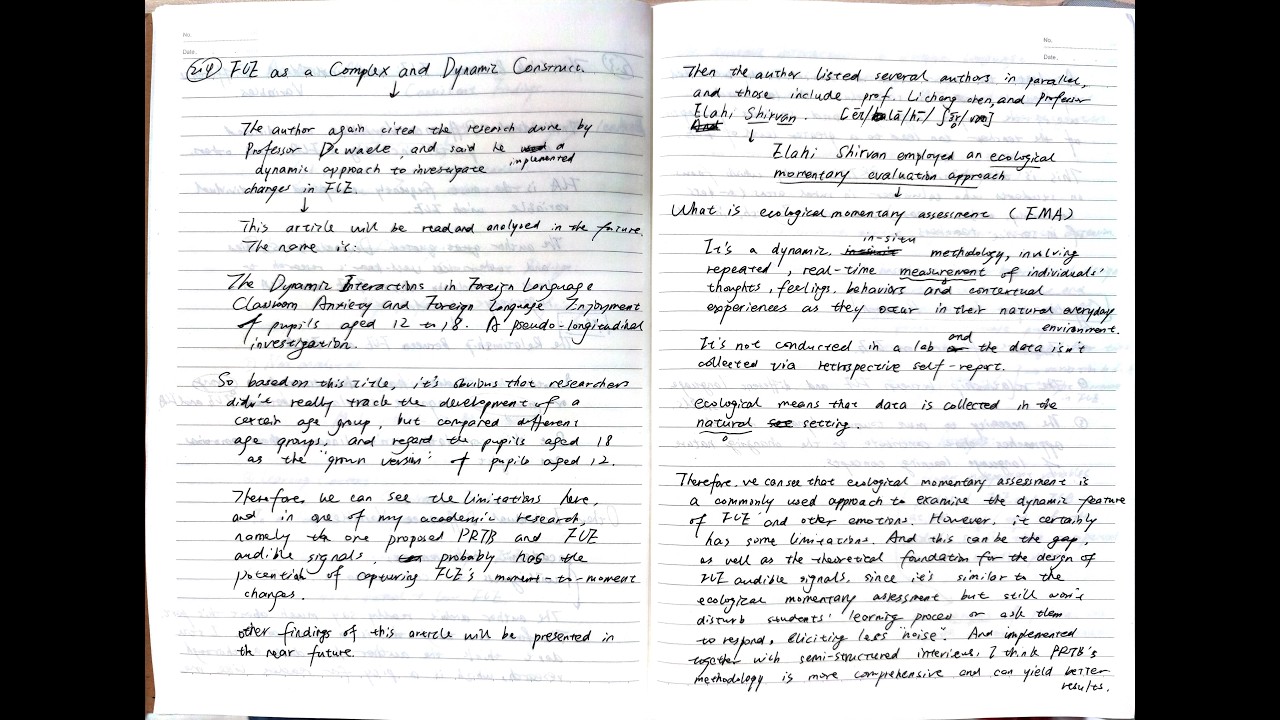 No.
Date.
2.4 FLE as a Complex and Dynamic Construct.
↓
The author again cited the research done by
Professor Dewaele, and said he implemented a
dynamic approach to investigate
changes in FLE.
↓
This article will be read and analysed in the future.
The name is:
The Dynamic Interactions in Foreign Language
Classroom Anxiety and Foreign Language Enjoyment
of pupils aged 12 to 18. A pseudo-longitudinal
investigation.
So based on this title, it's obvious that researchers
didn't really track the development of a
certain age group, but compared different
age groups, and regard the pupils aged 18
as the grown version of pupils aged 12.
Therefore, we can see the limitations here,
and in one of my academic research,
namely the one proposed PRTB and FLE
audible signals, probably has the
potential of capturing FLE's moment-to-moment
changes.
other findings of this article will be presented in
the near future.
No.
Date.
Then the author listed several authors in parallel,
and those include prof. Li chengchen, and professor
Elahi Shirvan.
↓
Elahi Shirvan employed an ecological
momentary evaluation approach
↓
What is ecological momentary assessment (EMA)
It's a dynamic, in-situ methodology, involving
repeated, real-time measurement of individuals'
thoughts, feelings, behaviors and contextual
experiences as they occur in their natural everyday
environment.
It's not conducted in a lab and the data isn't
collected via retrospective self-report.
ecological means that data is collected in the
natural setting.
Therefore, we can see that ecological momentary assessment is
a commonly used approach to examine the dynamic feature
of FLE and other emotions. However, it certainly
has some limitations. And this can be the gap,
as well as the theoretical foundation for the design of
FLE audible signals, since it's similar to the
ecological momentary assessment but still won't
disturb students' learning process or ask them
to respond, eliciting less "noise". And implemented
together with semi-structured interviews, I think PRTB's
methodology is more comprehensive and can yield better
results.